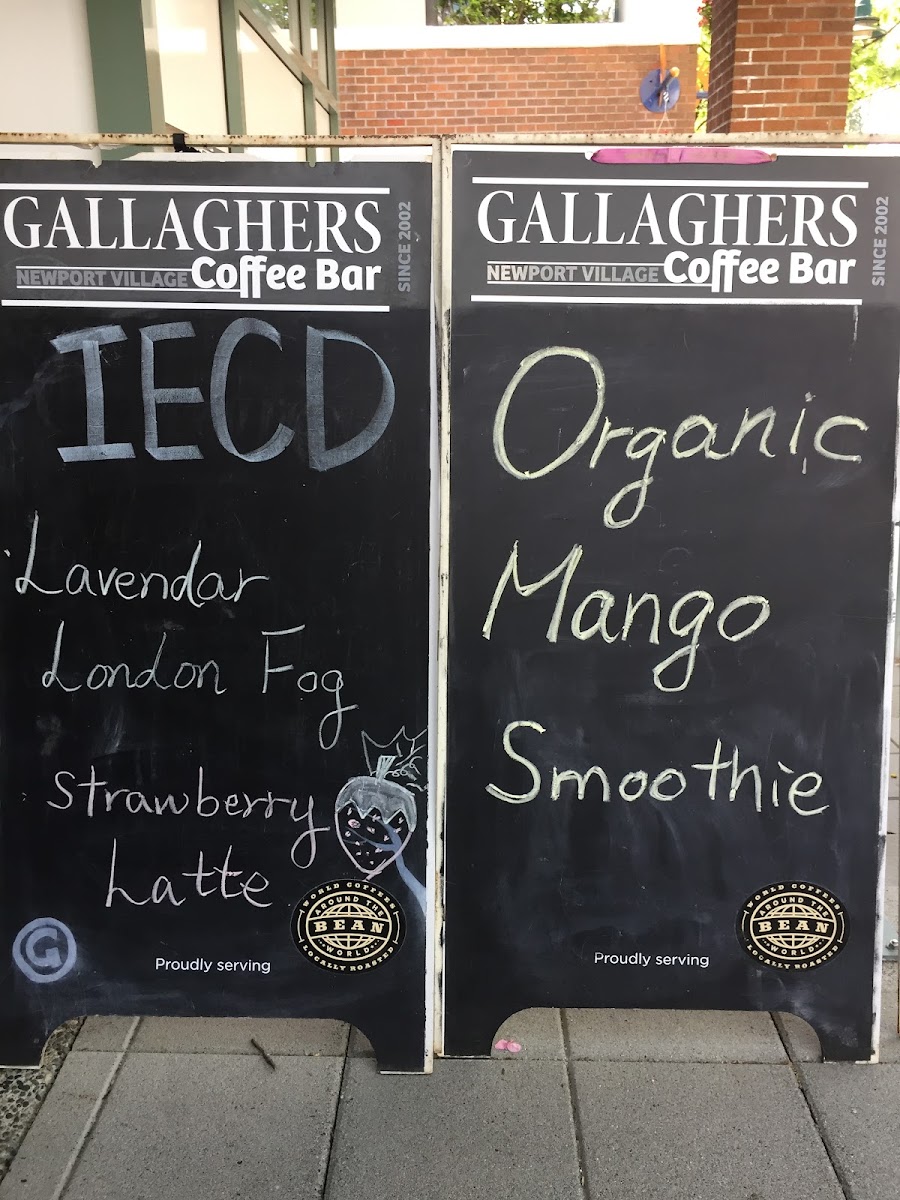 GALLAGHERS
NEWPORT VILLAGE Coffee Bar
SINCE 2002
IECD
Lavendar
London Fog
Strawberry
Latte
G
Proudly serving
WORLD COFFEES
AROUND THE
BEAN
WORLD
LOCALLY ROASTED
GALLAGHERS
NEWPORT VILLAGE Coffee Bar
SINCE 2002
Organic
Mango
Smoothie
Proudly serving
WORLD COFFEES
AROUND THE
BEAN
WORLD
LOCALLY ROASTED